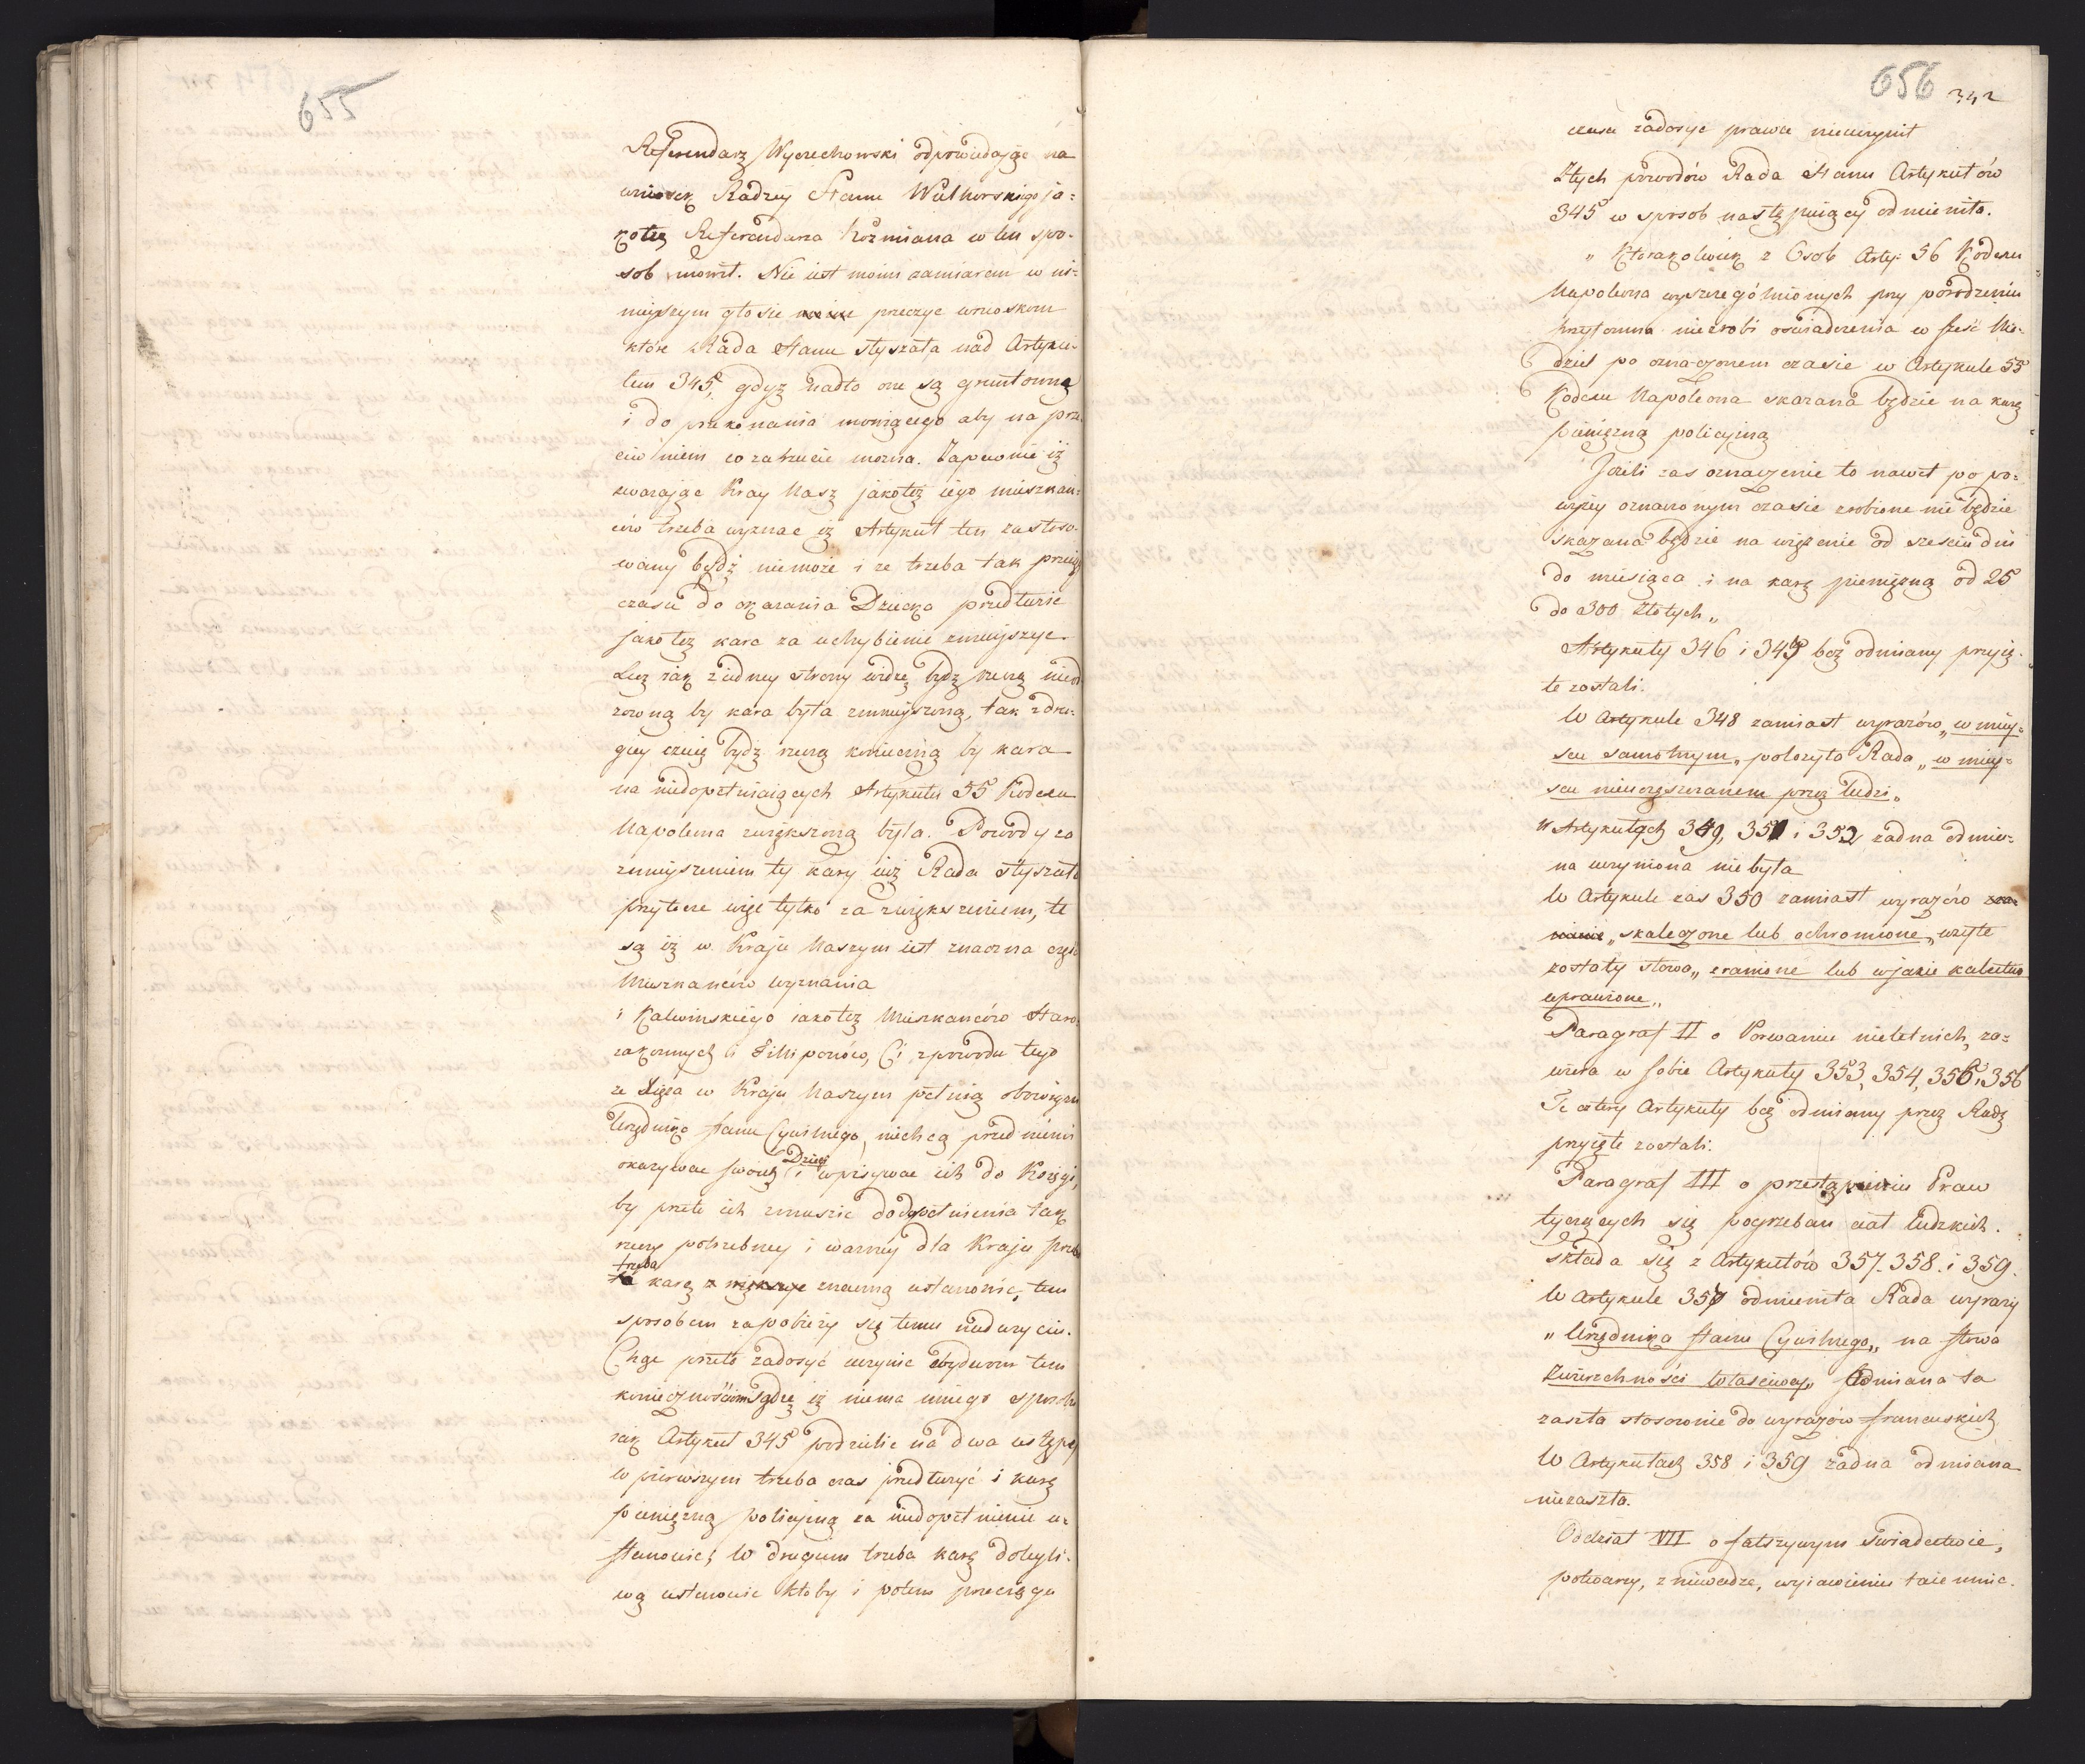 655
Referendarz Wyczechowski odpowiadaiąc na
wniosek Radzcy Stanu Wielhorskiego ja=
kotez Referendarza Kozmiana w ten spo=
sob mowił. Nie iest moim zamiarem w ni=
nieyszym głosie przeczyc wnioskom
które Rada Stanu słyszała nad Artyku=
łem 345, gdyż nadto one są gruntowne
i do przekonania mowiącego aby na prze=
ciw niem co zarzucić mozna. Zapewnie iż
zwazając Kray Nasz jakoteż iego mieszkan=
ców trzeba wyznac iż Artykuł ten zastoso=
wany bydź niemoże i ze trzeba tak przeciąg
czasu do okazania Dziecka przedłużić
jakotez karę za uchybienie zmnieyszyc.
Lecz jak z iedney strony widzę bydz rzeczą
by kara była zmnieyszoną, tak z dru=
giey czuię bydz rzeczą konieczną by kara
na niedopełniaiących Artykułu 55 Kodexu
Napoleona zwiększoną była. Powody za
zmnieyszeniem tey kary iuż Rada słyszała
przytoczę więc tylko za zwiększeniem, te
są iż w Kraju Naszym iest znaczna część
Mieszkańców wyznania
i Kalwinskiego iakotez Mieszkańców Staro=
zakonnych i Filiponów, Ci z powodu tego
ze Xięża w Kraju Naszym pełnią obowiązki
Urzędnika Stanu Cywilnego, niechcą przed niemi
okazywac swoich Dzieci i wpisywac ich do Księgi,
by przeto ich zmusić do dopełnienia tak
rzeczy potrzebney i ważney dla Kraju
trzeba karę znaczną ustanowić, tem
sposobem zapobieży się temu nadużyciu.
Chcąc przeto zadosyć uczynic obydwom tem
koniecznościom sądzę iż niema innego sposobu
jak Artykuł 345 podzielic na dwa ustępy
w pierwszym trzeba czas przedłużyć i karę
pieniężną policyjną za niedopełnienie u=
stanowić; w drugim trzeba karę dotkli=
wą ustanowic ktoby i potem przeciągu
656 342
czasu zadosyc prawu nieuczynił
Z tych powodów Rada Stanu Artykułów
345 w sposob następuiący odmieniła.
„ Ktorakolwiek z Osob Arty: 56 Kodexu
Napoleona wyszczególnionych przy porodzeniu
przytomna niezrobi oswiadczenia w sześć Nie=
dziel po oznaczonem czasie w Artykule 55
Kodexu Napoleona skazana będzie na karę
pieniężną policyjną
Jeżeli zas oznaczenie to nawet po po=
wyżey oznaczonym czasie zrobione nie będzie
skazana będzie na więzenie od szesciu dni
do miesiąca i na karę pieniężną od 25
do 300 Złotych„
Artykuły 346 i 347 bez odmiany przyię=
te zostali.
W Artykule 348 zamiast wyrazów „w miey=
scu samotnym„ położyła Rada „w miey=
scu nieuczęszczanem przez ludzi„
W Artykułach 349, 351 i 352 żadna odmia=
na uczyniona nie była
W Artykule zas 350 zamiast wyrazów
„skaleczone lub ochromione„ użyte
zostały słowa „zranione lub w jakie kalectwo
wprawione„
Paragraf II o Porwaniu nieletnich, za=
wiera w sobie Artykuły 353, 354, 355 i 356
Te cztery Artykuły bez odmiany przez Radę
przyięte zostali.
Paragraf III o przestąpieniu Praw
tyczących się pogrzebau ciał ludzkich.
składa się z Artykułów 357. 358. i 359.
W Artykule 357 odmieniła Rada wyrazy
„Urzędnika Stanu Cywilnego„ na słowa
Zwierzchności właściwey„ Odmiana ta
zaszła stosownie do wyrazów francuskich
W Artykułach 358 i 359 żadna odmiana
niezaszła.
Oddział VII o fałszywym świadectwie,
potwarzy, zniewadze, wyiawieniu taiemnic.